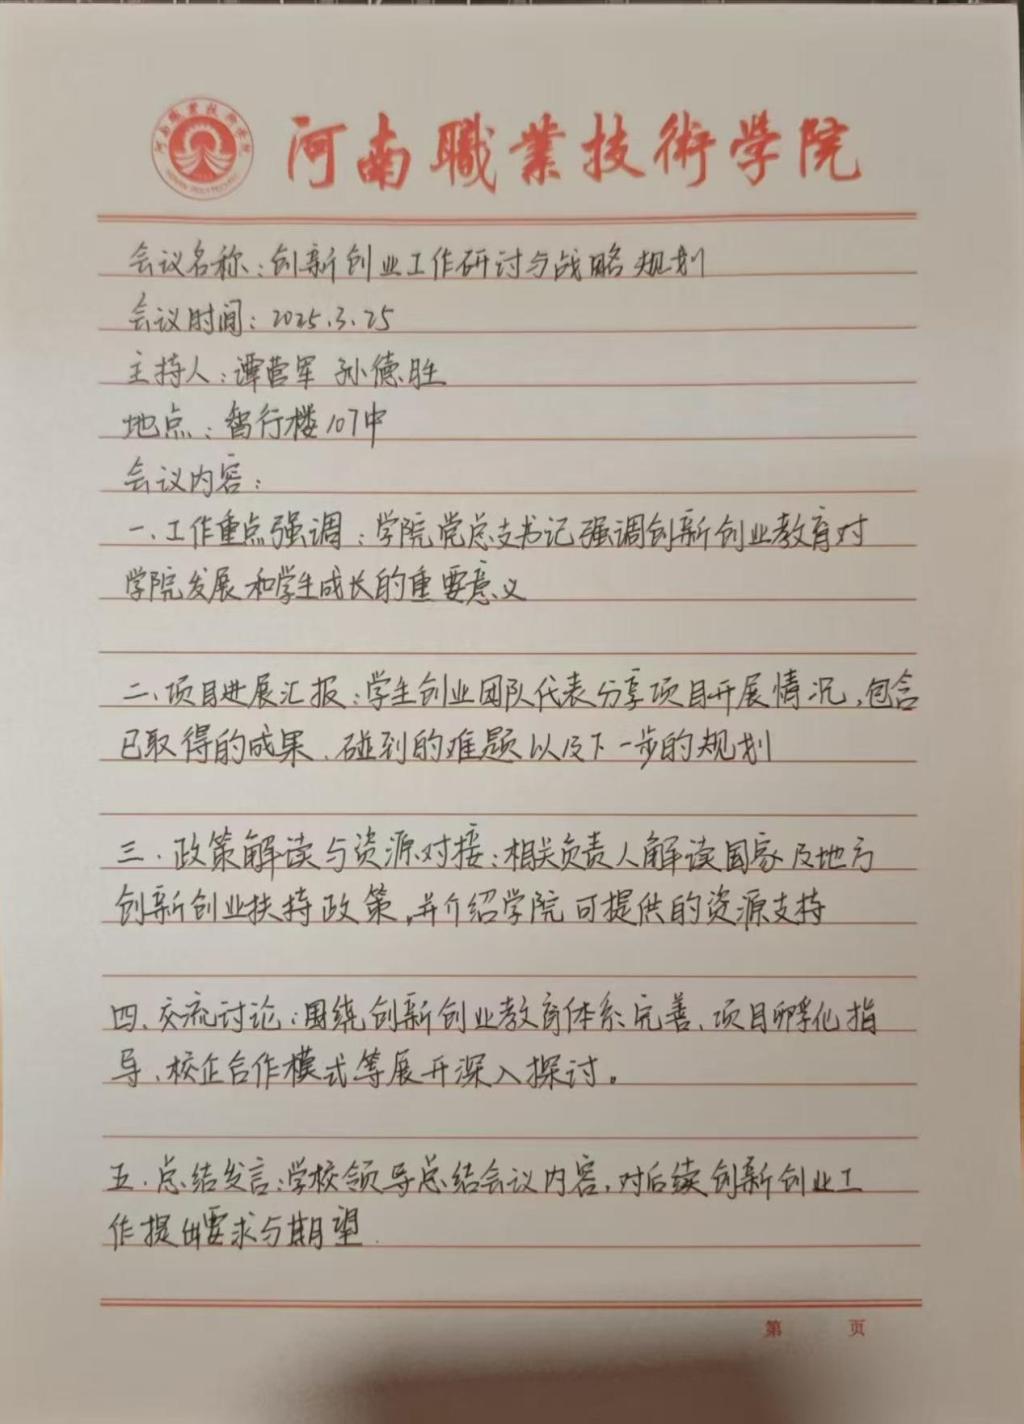 河南職業技術学院
会议名称：创新创业工作研讨与战略规划
会议时间：2025.3.25
主持人：谭营军 孙德胜
地点：智行楼107中
会议内容：
一、工作重点强调：学院党总支书记强调创新创业教育对
学院发展和学生成长的重要意义
二、项目进展汇报：学生创业团队代表分享项目开展情况，包含
已取得的成果、碰到的难题以及下一步的规划
三、政策解读与资源对接：相关负责人解读国家及地方
创新创业扶持政策，并介绍学院可提供的资源支持
四、交流讨论：围绕创新创业教育体系完善、项目孵化指
导、校企合作模式等展开深入探讨。
五、总结发言：学校领导总结会议内容，对后续创新创业工
作提出要求与期望.
第 页